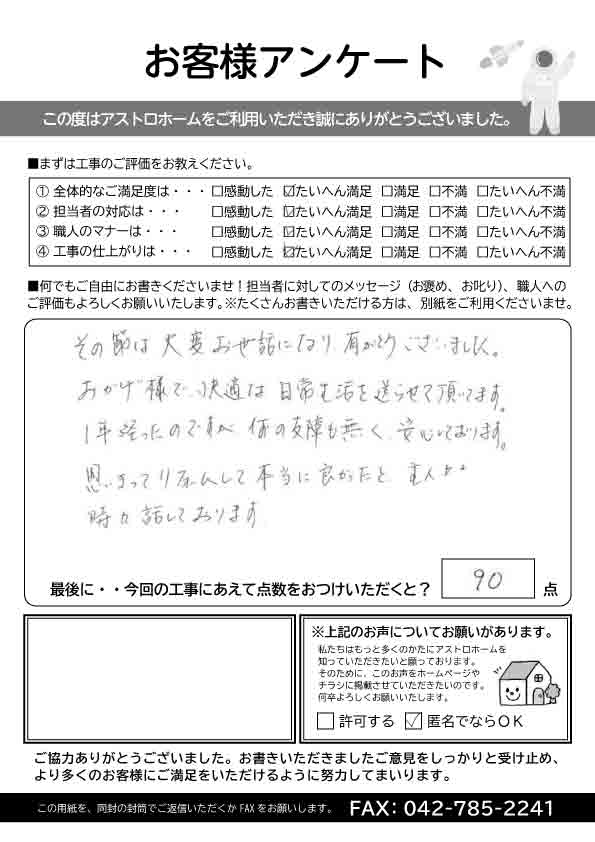 お客様アンケート
この度はアストロホームをご利用いただき誠にありがとうございました。
■まずは工事のご評価をお教えください。
① 全体的なご満足度は・・・ □感動した ☑たいへん満足 □満足 □不満 □たいへん不満
② 担当者の対応は・・・ □感動した ☑たいへん満足 □満足 □不満 □たいへん不満
③ 職人のマナーは・・・ □感動した ☑たいへん満足 □満足 □不満 □たいへん不満
④ 工事の仕上がりは・・・ □感動した ☑たいへん満足 □満足 □不満 □たいへん不満
■何でもご自由にお書きくださいませ！担当者に対してのメッセージ（お褒め、お叱り）、職人への
ご評価もよろしくお願いいたします。※たくさんお書きいただける方は、別紙をご利用くださいませ。
その節は大変お世話になり有がとうございました。
おかげ様で、快適な日常生活を送らせて頂いてます。
1年経ったのですが何の支障も無く、安心しております。
思いきってリフォームして本当に良かったと、主人と
時々話しております。
最後に・・今回の工事にあえて点数をおつけいただくと？ 90 点
※上記のお声についてお願いがあります。
私たちはもっと多くのかたにアストロホームを
知っていただきたいと願っております。
そのために、このお声をホームページや
チラシに掲載させていただきたいのです。
何卒よろしくお願いいたします。
□ 許可する ☑ 匿名でならＯＫ
ご協力ありがとうございました。お書きいただきましたご意見をしっかりと受け止め、
より多くのお客様にご満足をいただけるように努力してまいります。
この用紙を、同封の封筒でご返信いただくか FAX をお願いします。 FAX: 042-785-2241